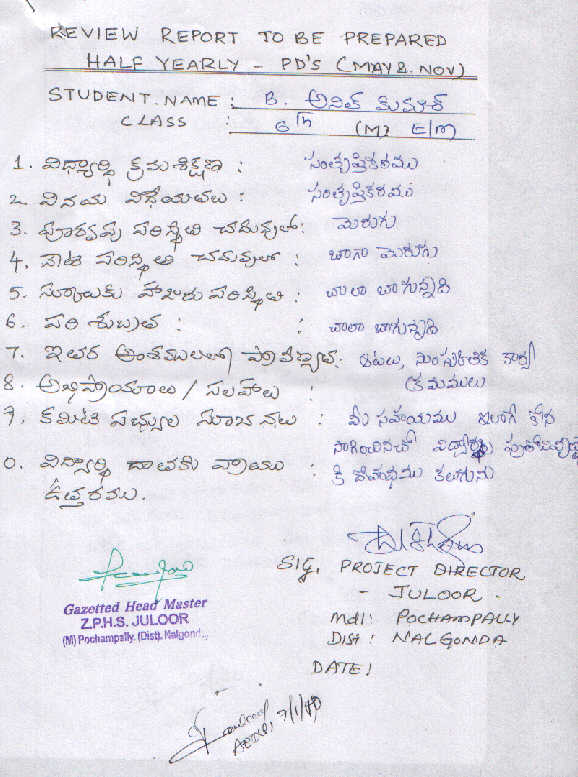 REVIEW REPORT TO BE PREPARED
HALF YEARLY - PD'S (MAY & NOV)
STUDENT NAME : B. అనిల్ కుమార్
CLASS : 6th (M) E/m
1. విద్యార్థి క్రమశిక్షణ : సంతృప్తికరము
2. వినయ విధేయతలు : సంతృప్తికరము
3. పూర్వపు పరిస్థితి చదువులో : మెరుగు
4. నేటి పరిస్థితి చదువులో : బాగా మెరుగు
5. స్కూలుకు హాజరు పరిస్థితి : చాలా బాగున్నది
6. పరిశుభ్రత : చాలా బాగున్నది
7. ఇతర అంశములలో ప్రావీణ్యత : ఆటలు, సాంస్కృతిక కార్య
క్రమములు
8. అభిప్రాయాలు / సలహాలు :
9. కమిటి సభ్యుల సూచనలు : మీ సహాయము ఇలాగే కొన
సాగించినచో విద్యార్థి
0. విద్యార్థి దాతకు వ్రాయు : కి కలుగును
ఉత్తరము.
SIG, PROJECT DIRECTOR
- JULOOR -
Mdl: POCHAMPALLY
Dist: NALGONDA
DATE:
Gazetted Head Master
Z.P.H.S. JULOOR
(M) Pochampally, (Dist). Nalgond..